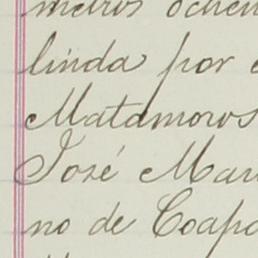 metros ochen
linda por e
Matamoros
José Mar
no de Coapa